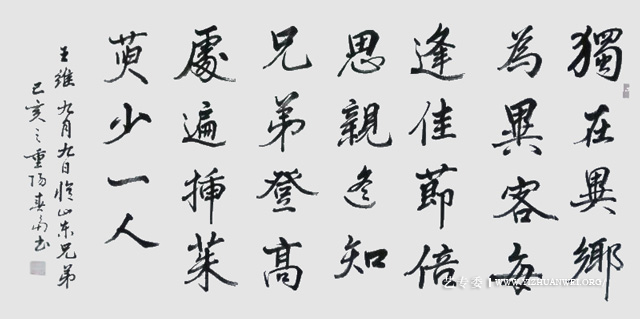 獨在異鄉
為異客每
逢佳節倍
思親遙知
兄弟登高
處遍插茱
萸少一人
王維九月九日憶山東兄弟
己亥之重陽春书
艺专委